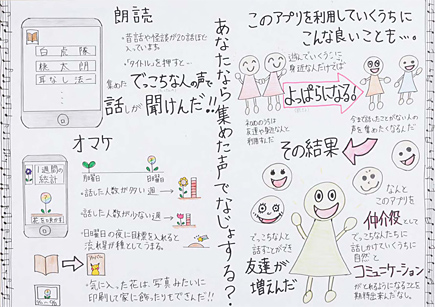 朗読
・昔話や怪談が20話ほど
・「タイトル」を押すと…
集めた でっこちな人の声で
話しが聞けんだ!!
白虎隊
桃太郎
耳なし法一
オマケ
1週間の
統計
月曜日
日曜日
・話した人数が多い週
・話した人数が少ない週
・日曜日の夜に目標を入れると
・気に入った花は、写真みたいに
印刷し家に飾ったりもできんだ!!
あなたなら集めた声でなじょする?
このアプリを利用していくうちに
こんな良いことも…。
遊んでいくうちに
身近な人だけでは
よっぱらになる。
初めのうちは
友達や身近な人と
今まで話したことがない人の
声を集めたくなるんだ
その結果
でっこちな人と
話すことができ
友達が
増えんだ
なんと
このアプリを
仲介役として
でっこちな人たちに
話しかけていくうちに
自然と
コミュニケーション
がとれるようになることを